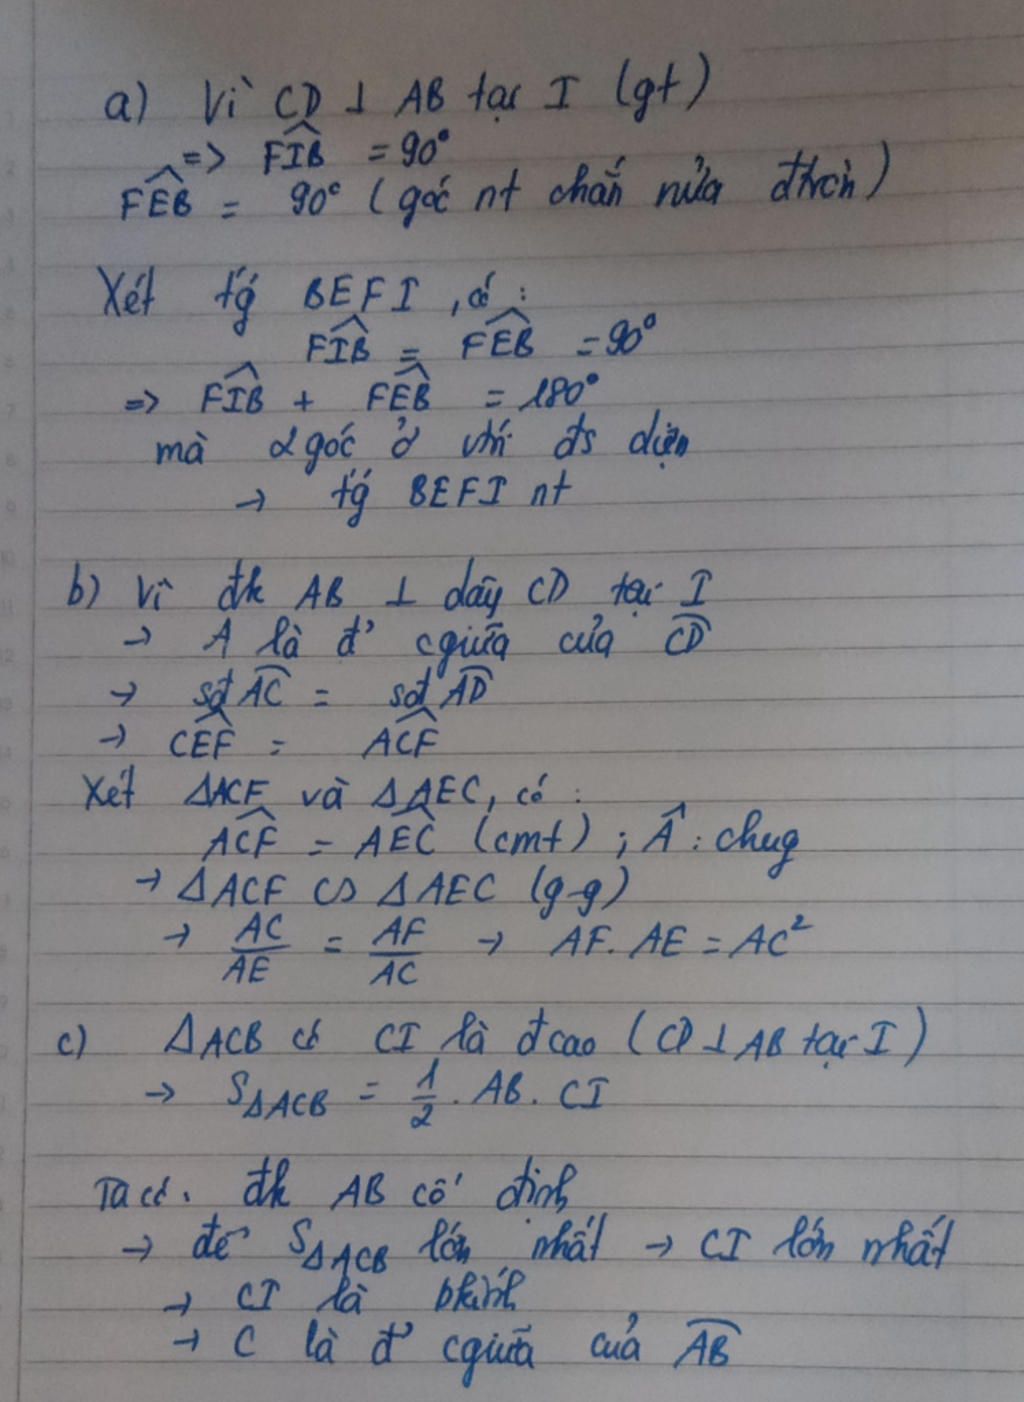 a) Vì CD ⊥ AB tại I (gt)
=> FIB̂ = 90°
FEB̂ = 90° (góc nt chắn nửa đtròn)
Xét tg BEFI, có:
FIB̂ = FEB̂ = 90°
=> FIB̂ + FEB̂ = 180°
mà 2 góc ở vtrí đs diện
→ tg BEFI nt
b) Vì đk AB ⊥ dây CD tại I
→ A là đ' cgiữa của CD̂
→ sđ AĈ = sđ AD̂
→ CEF̂ = ACF̂
Xét ΔACF và ΔAEC, có:
ACF̂ = AEĈ (cmt); Â: chug
→ ΔACF ∽ ΔAEC (g-g)
→ AC/AE = AF/AC → AF. AE = AC²
c) ΔACB có CI là đcao (CD ⊥ AB tại I)
→ SΔACB = 1/2 . AB. CI
Ta có. đk AB cố định
→ để SΔACB lớn nhất → CI lớn nhất
→ CI là bkính
→ C là đ' cgiữa của AB̂